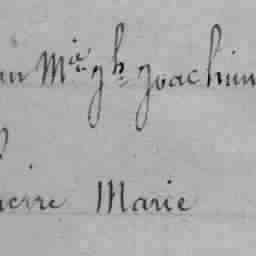 in Mie Jh Joachim
ierre Marie